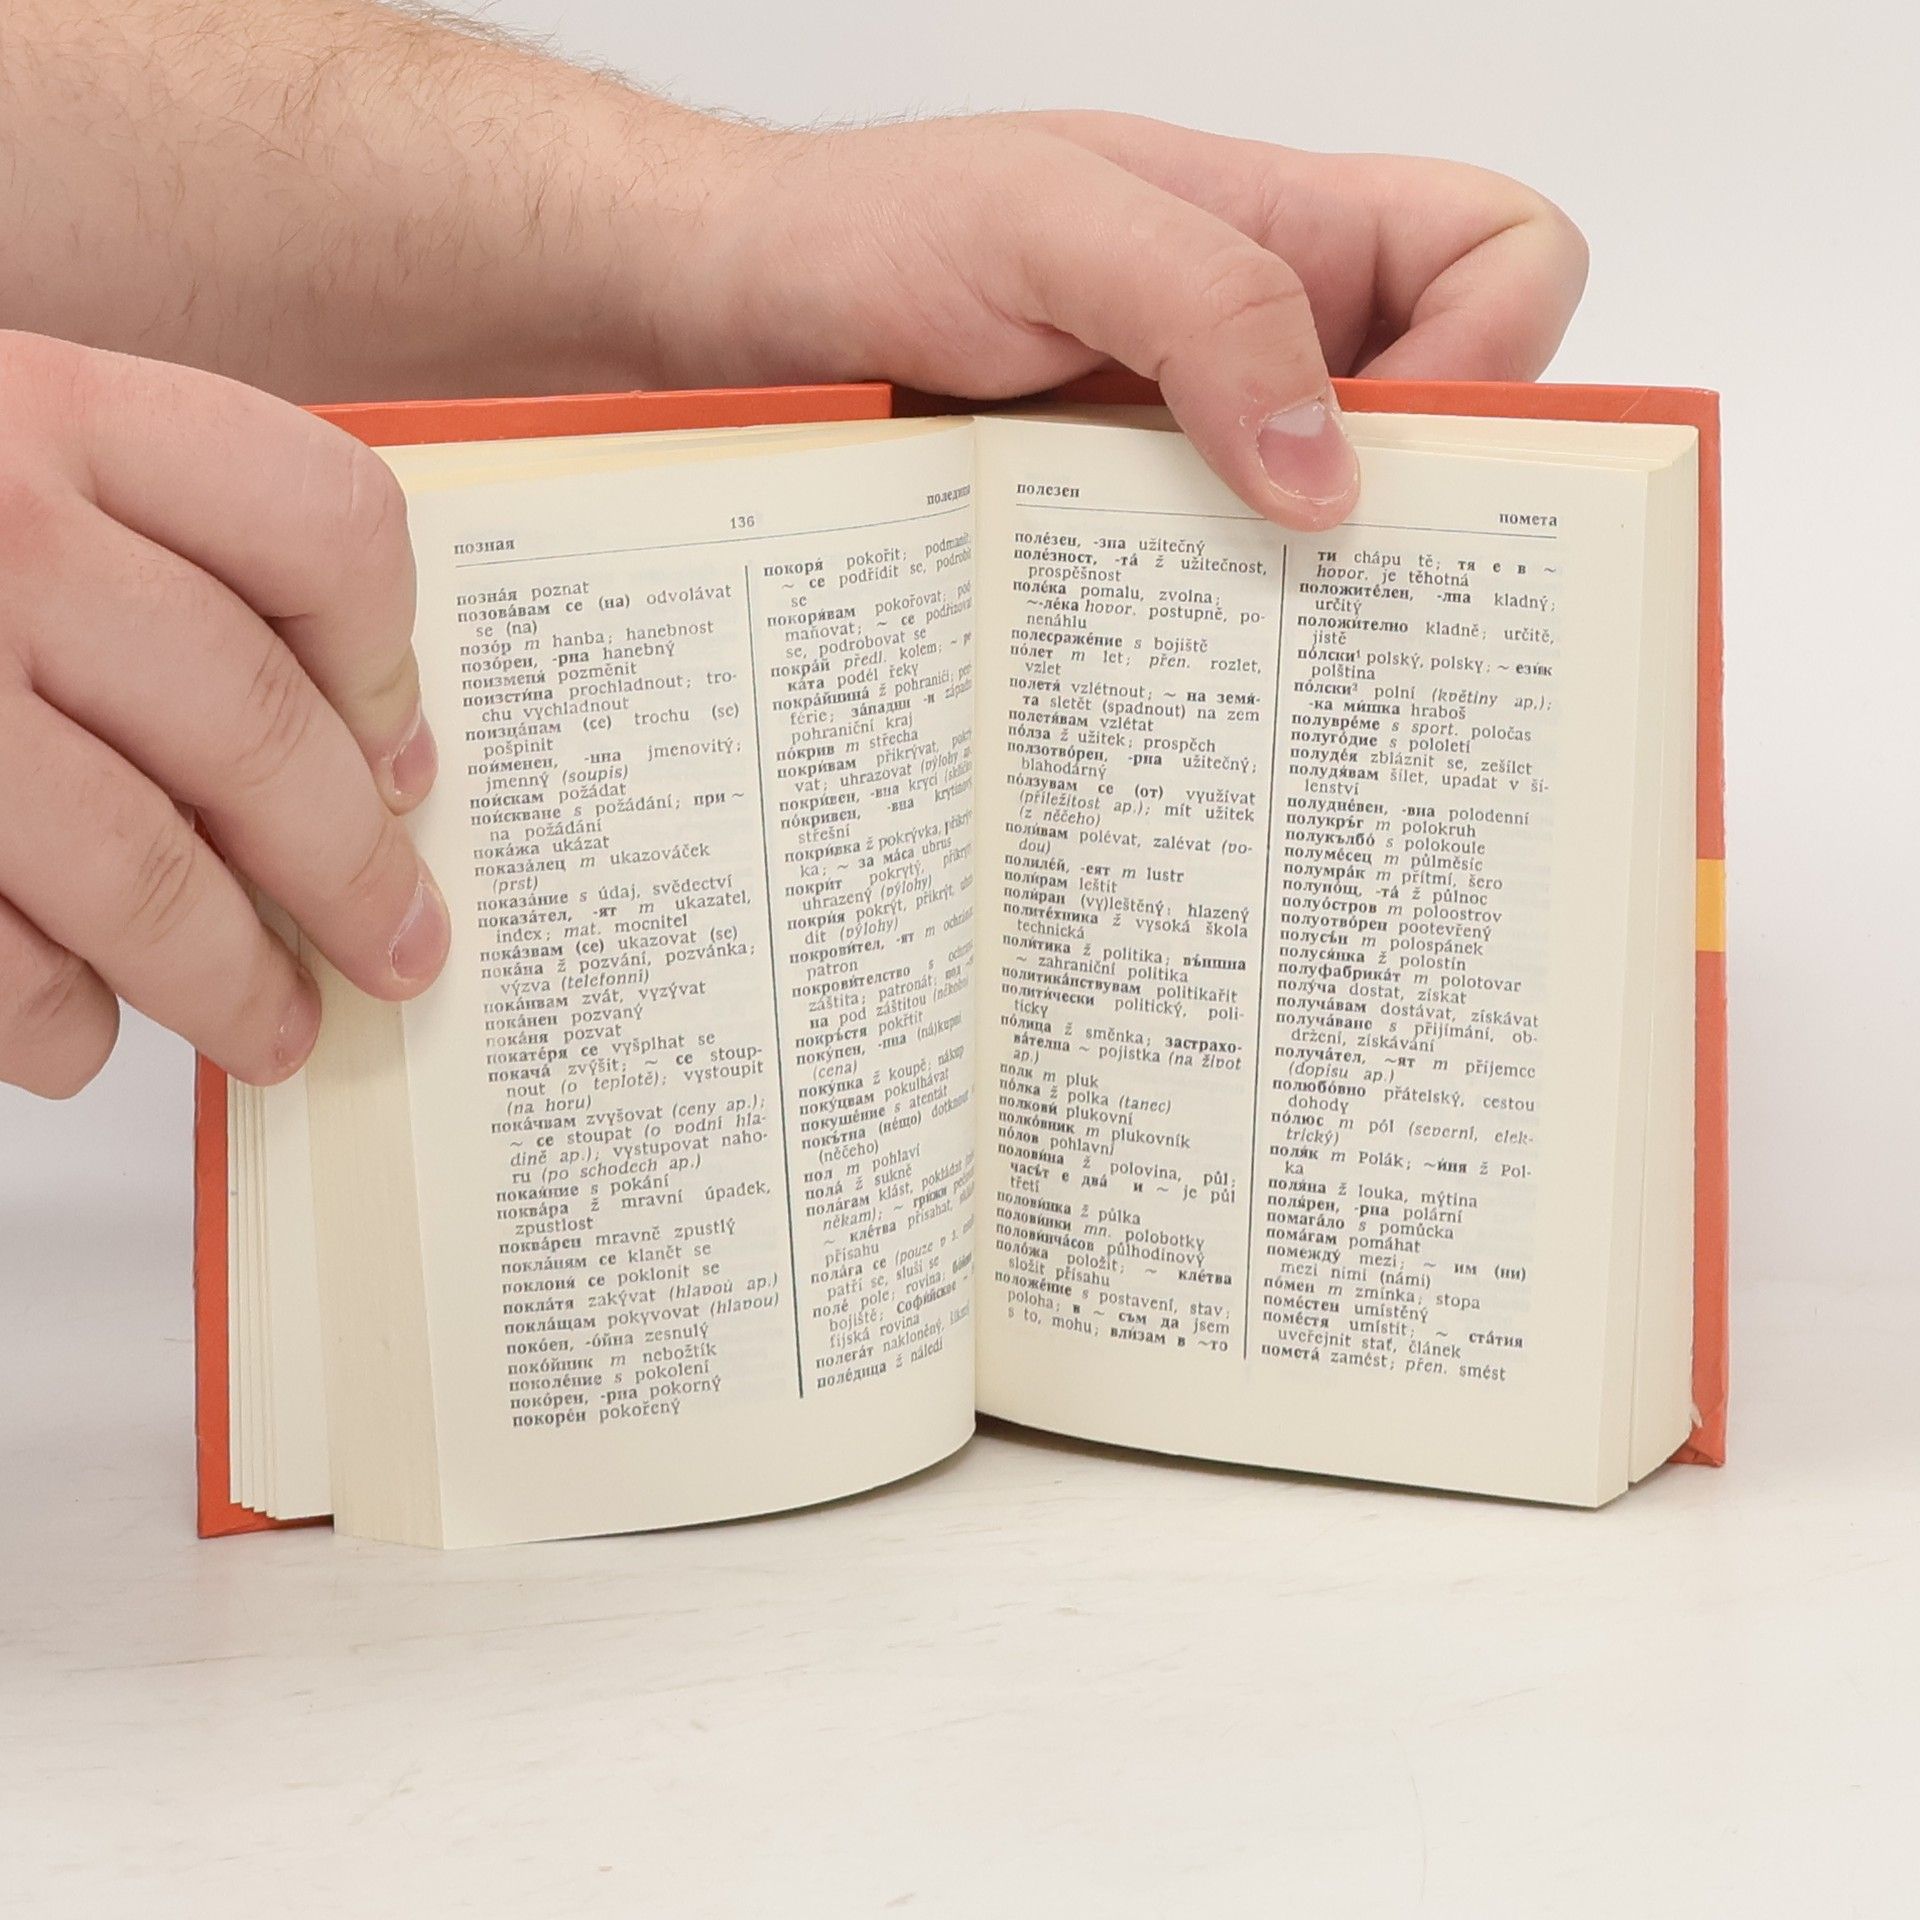 позная
136
позна́я poznat
позова́вам се (на) odvolávat
se (na)
позо́р m hanba; hanebnost
позо́рен, -рна hanebný
поизменя́ pozměnit
поизсти́на prochladnout; tro-
chu vychladnout
поизца́пам (се) trochu (se)
pošpinit
пои́менен, -нна jmenovitý;
jmenný (soupis)
пои́скам požádat
пои́скване s požádání; при ~
na požádání
пока́жа ukázat
показа́лец m ukazováček
(prst)
показа́ние s údaj, svědectví
показа́тел, -ят m ukazatel,
index; mat. mocnitel
пока́звам (се) ukazovat (se)
пока́на ž pozvání, pozvánka;
výzva (telefonní)
пока́нвам zvát, vyzývat
пока́нен pozvaný
пока́ня pozvat
покате́ря се vyšplhat se
покача́ zvýšit; ~ се stoup-
nout (o teplotě); vystoupit
(na horu)
пока́чвам zvyšovat (ceny ap.);
~ се stoupat (o vodní hla-
dině ap.); vystupovat naho-
ru (po schodech ap.)
покая́ние s pokání
поква́ра ž mravní úpadek,
zpustlost
поква́рен mravně zpustlý
покла́ням се klanět se
поклоня́ се poklonit se
покла́тя zakývat (hlavou ap.)
покла́щам pokyvovat (hlavou)
поко́ен, -о́йна zesnulý
поко́йник m nebožtík
поколе́ние s pokolení
поко́рен, -рна pokorný
покоре́н pokořený
покоря́ pokořit; podmanit;
~ се podřídit se, podrobit
se
покоря́вам pokořovat;
maňovat; ~ се podřizovat
se, podrobovat se
покра́й předl. kolem; ~
ка́та podél řeky
покра́йнина́ ž pohraničí;
férie; за́падни -и
pohraniční kraj
по́крив m střecha
покри́вам přikrývat,
vat; uhrazovat (výlohy ap.
покри́вен, -вна krycí
по́кривен, -вна
střešní
покри́вка ž pokrývka,
ka; ~ за ма́са ubrus
покри́т pokrytý,
uhrazený (výlohy)
покри́я pokrýt, přikrýt,
dit (výlohy)
покрови́тел, -ят m
patron
покрови́телство s
záštita; patronát; под
на pod záštitou
покръ́стя pokřtít
поку́пен, -пна (ná)kupní
(cena)
поку́пка ž koupě; nákup
поку́цвам pokulhávat
покуше́ние s atentát
покъ́тна (не́що) dotknout
(něčeho)
пол m pohlaví
пола́ ž sukně
пола́гам klást, pokládat
někam); ~ гри́жи
~ кле́тва přísahat,
přísahu
пола́га се (pouze v 3.
patří se, sluší se
поле́ pole; rovina;
bojiště; Софи́йско
fijská rovina
полега́т nakloněný,
поле́дица ž náledí
полезен
помета
поле́зен, -зна užitečný
поле́зност, -та́ ž užitečnost,
prospěšnost
поле́ка pomalu, zvolna;
~-ле́ка hovor. postupně, po-
nenáhlu
полесраже́ние s bojiště
по́лет m let; přen. rozlet,
vzlet
полетя́ vzlétnout; ~ на земя́-
та sletět (spadnout) na zem
полетя́вам vzlétat
по́лза ž užitek; prospěch
ползотво́рен, -рна užitečný;
blahodárný
по́лзувам се (от) využívat
(příležitost ap.); mít užitek
(z něčeho)
поли́вам polévat, zalévat (vo-
dou)
полиле́й, -еят m lustr
поли́рам leštit
поли́ран (vy)leštěný; hlazený
полите́хника ž vysoká škola
technická
поли́тика ž politika; въ́ншна
~ zahraniční politika
политика́нствувам politikařit
полити́чески politický, poli-
ticky
по́лица ž směnka; застрахо-
ва́телна ~ pojistka (na život
ap.)
полк m pluk
по́лка ž polka (tanec)
полкови́ plukovní
полко́вник m plukovník
по́лов pohlavní
полови́на ž polovina, půl;
часъ́т е два́ и ~ je půl
třetí
полови́нка ž půlka
полови́нки mn. polobotky
полови́нча́сов půlhodinový
поло́жа položit; ~ кле́тва
složit přísahu
положе́ние s postavení, stav;
poloha; в ~ съм да jsem
s to, mohu; вли́зам в ~то
ти chápu tě; тя е в ~
hovor. je těhotná
положи́телен, -лна kladný;
určitý
положи́телно kladně; určitě,
jistě
по́лски¹ polský, polsky; ~ ези́к
polština
по́лски² polní (květiny ap.);
-ка ми́шка hraboš
полувре́ме s sport. poločas
полуго́дие s pololetí
полуде́я zbláznit se, zešílet
полудя́вам šílet, upadat v ší-
lenství
полудне́вен, -вна polodenní
полукръ́г m polokruh
полукълбо́ s polokoule
полуме́сец m půlměsíc
полумра́к m přítmí, šero
полуно́щ, -та́ ž půlnoc
полуо́стров m poloostrov
полуотво́рен pootevřený
полусъ́н m polospánek
полуся́нка ž polostín
полуфабрика́т m polotovar
полу́ча dostat, získat
получа́вам dostávat, získávat
получа́ване s přijímání, ob-
držení, získávání
получа́тел, ~ят m příjemce
(dopisu ap.)
полюбо́вно přátelský, cestou
dohody
по́люс m pól (severní, elek-
trický)
поля́к m Polák; ~и́ня ž Pol-
ka
поля́на ž louka, mýtina
поля́рен, -рна polární
помага́ло s pomůcka
пома́гам pomáhat
помежду́ mezi; ~ им (ни)
mezi nimi (námi)
по́мен m zmínka; stopa
поме́стен umístěný
поме́стя umístit; ~ ста́тия
uveřejnit stať, článek
помета́ zamést; přen. smést